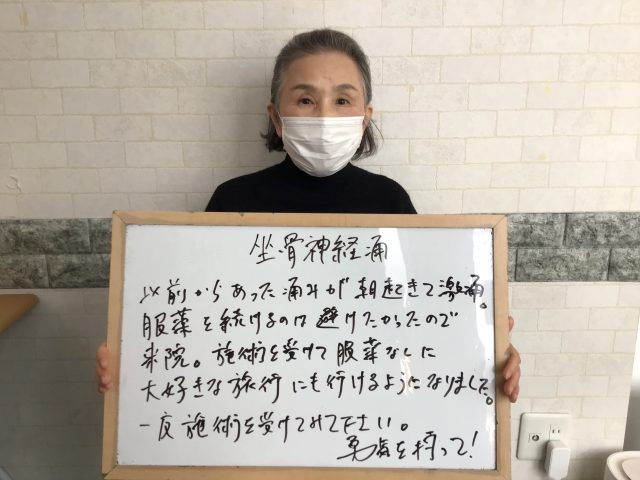 坐骨神経痛
以前からあった痛みが朝起きて激痛。
服薬を続けるのは避けたかったので
来院。施術を受けて服薬なしに
大好きな旅行にも行けるようになりました。
一度施術を受けてみて下さい。
勇気を持って!